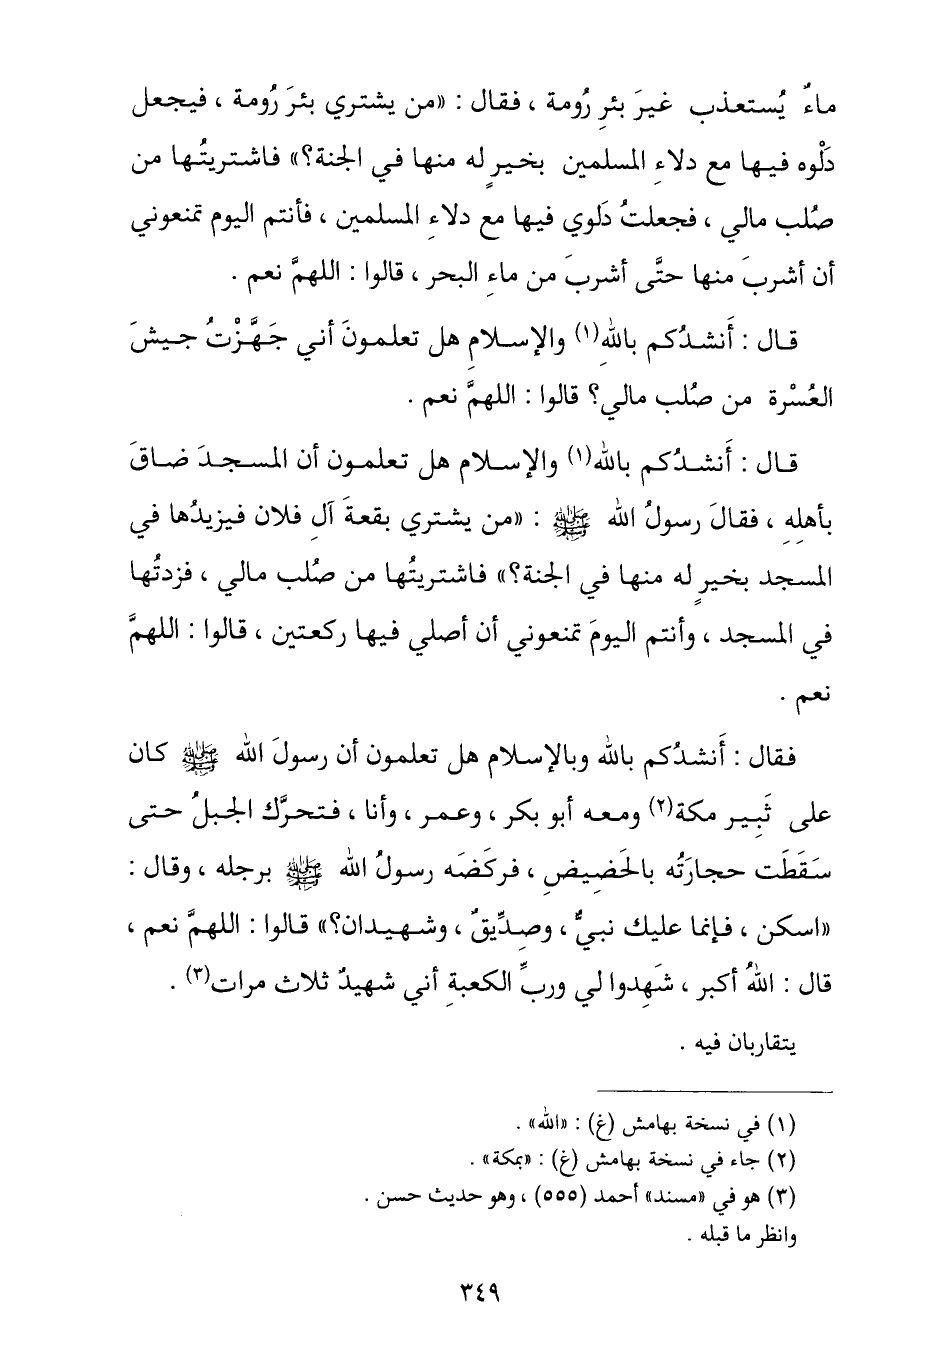 ماءٌ يُستعذب غيرَ بئرِ رُومة ، فقال : «من يشتري بئرَ رُومة ، فيجعل
دَلْوه فيها مع دلاءِ المسلمين بخيرٍ له منها في الجنة؟» فاشتريتُها من
صُلب مالي ، فجعلتُ دَلوي فيها مع دلاءِ المسلمين ، فأنتم اليوم تمنعوني
أن أشربَ منها حتَّى أشربَ من ماءِ البحر ، قالوا : اللهمَّ نعم .
قال : أَنشدُكم باللهِ(١) والإسلامِ هل تعلمونَ أني جَهَّزْتُ جيشَ
العُسْرة من صُلب مالي؟ قالوا : اللهمَّ نعم .
قال : أَنشدُكم بالله(١) والإسلام هل تعلمون أن المسجدَ ضاقَ
بأهلِهِ ، فقالَ رسولُ الله ﷺ : «من يشتري بقعةَ آلِ فلان فيزيدُها في
المسجد بخيرٍ له منها في الجنة؟» فاشتريتُها من صُلب مالي ، فزدتُها
في المسجد ، وأنتم اليومَ تمنعوني أن أصلي فيها ركعتين ، قالوا : اللهمَّ
نعم .
فقال : أَنشدُكم بالله وبالإسلام هل تعلمون أن رسولَ الله ﷺ كان
على ثَبِير مكة(٢) ومعه أبو بكر ، وعمر ، وأنا ، فتحرَّك الجبلُ حتى
سَقَطَت حجارَتُه بالحَضيضِ ، فركَضَه رسولُ الله ﷺ برجله ، وقال :
«اسكن ، فإنما عليك نبيٌّ ، وصِدِّيقٌ ، وشهيدان؟» قالوا : اللهمَّ نعم ،
قال : اللهُ أكبر ، شَهِدوا لي وربِّ الكعبةِ أني شهيدٌ ثلاث مرات(٣) .
يتقاربان فيه .
(١) في نسخة بهامش (غ) : «الله» .
(٢) جاء في نسخة بهامش (غ) : «بمكة» .
(٣) هو في «مسند» أحمد (٥٥٥) ، وهو حديث حسن .
وانظر ما قبله .
٣٤٩